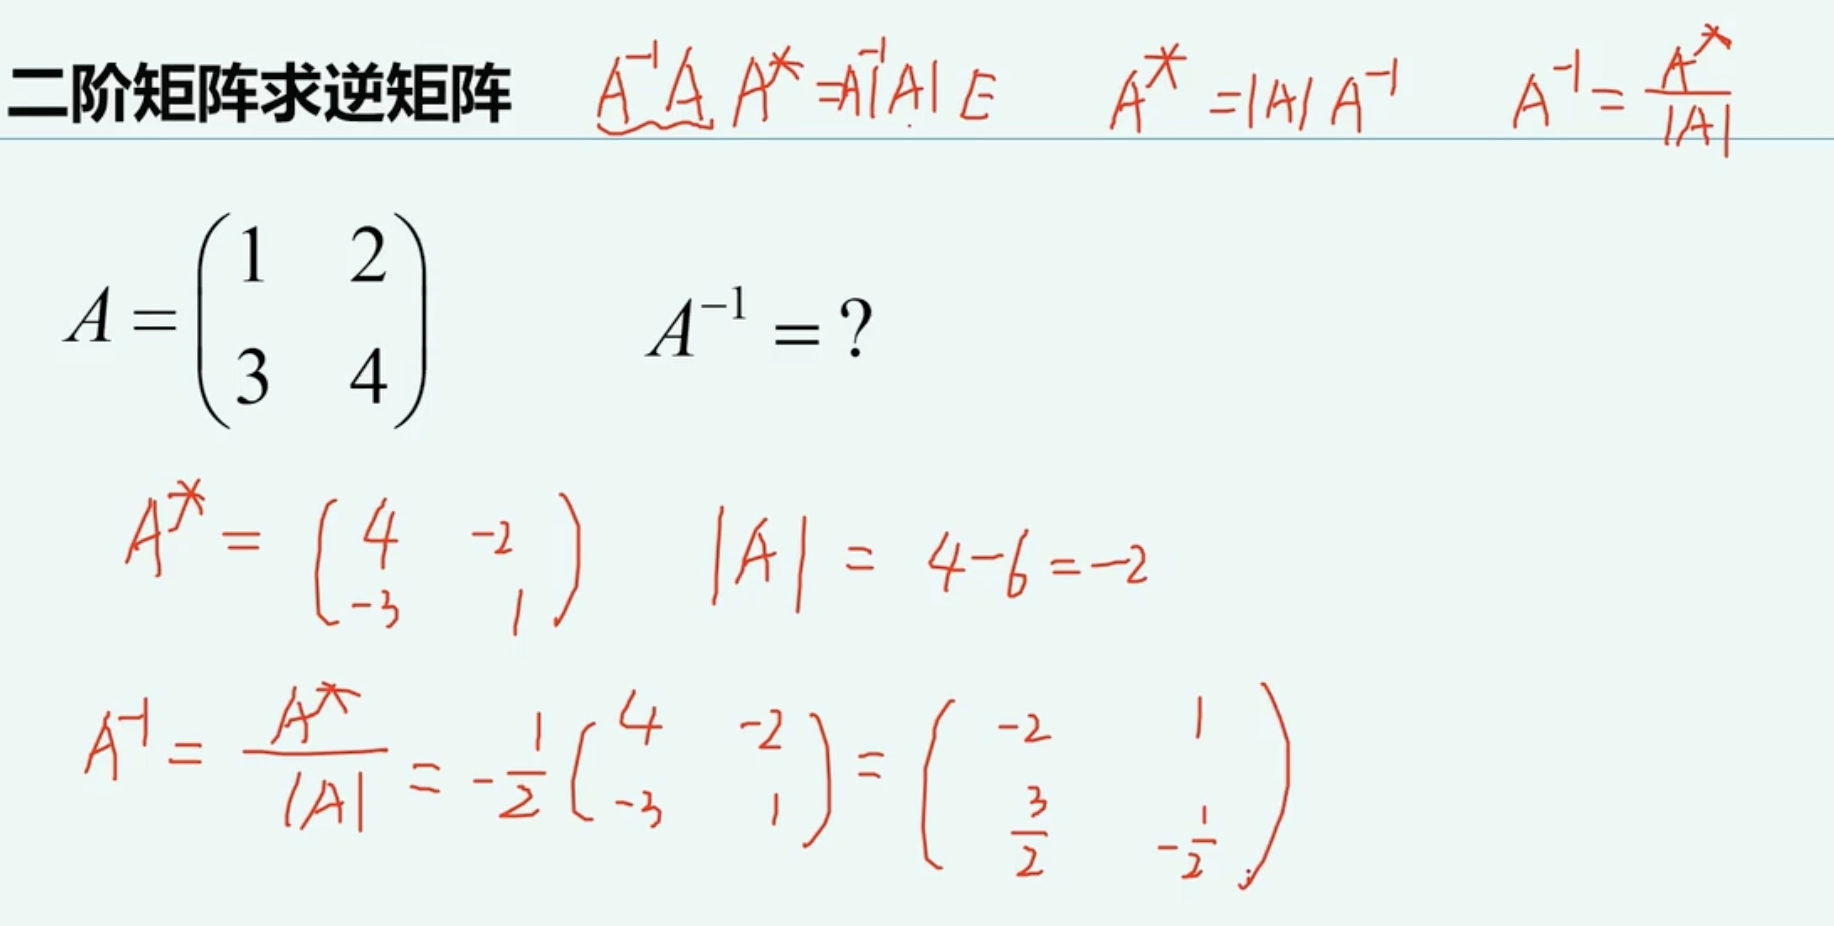 二阶矩阵求逆矩阵 A⁻¹A A* = A⁻¹|A|E A* = |A|A⁻¹ A⁻¹ = A*/|A|
A = (1 2; 3 4) A⁻¹ = ?
A* = (4 -2; -3 1) |A| = 4-6 = -2
A⁻¹ = A*/|A| = -1/2 (4 -2; -3 1) = (-2 1; 3/2 -1/2)